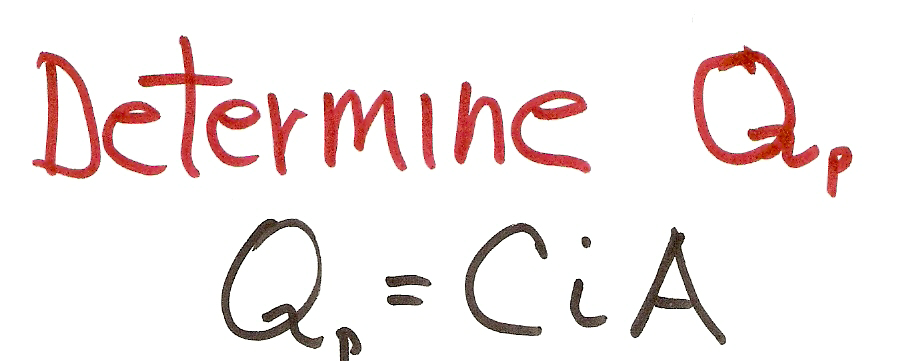 Determine Qp
Qp = CiA